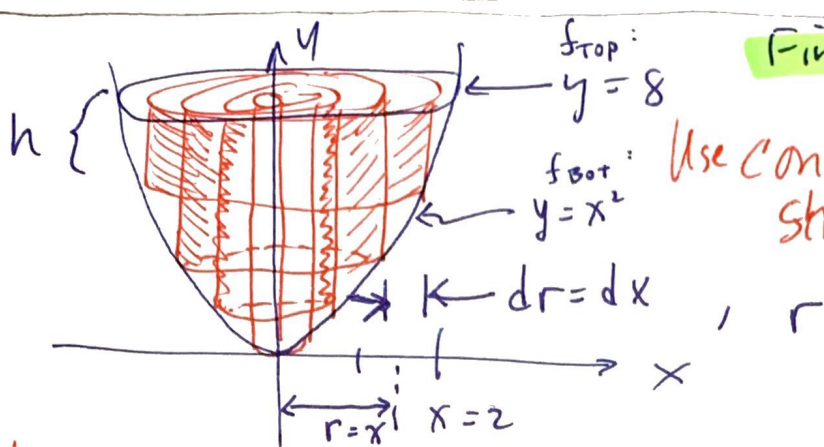 y
f_TOP:
y = 8
Fin
h {
f_BOT:
y = x²
Use con
sh
dr = dx , r
x
r = x
x = 2